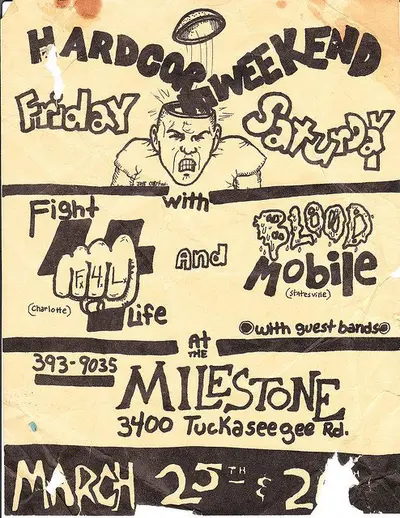 HARDCORE WEEKEND
Friday Saturday
with
Fight 4 Life
F4L
(Charlotte)
And
BLOOD
Mobile
(Statesville)
with guest bands
At
THE
393-9035
MILESTONE
3400 Tuckaseegee Rd.
MARCH 25TH & 2